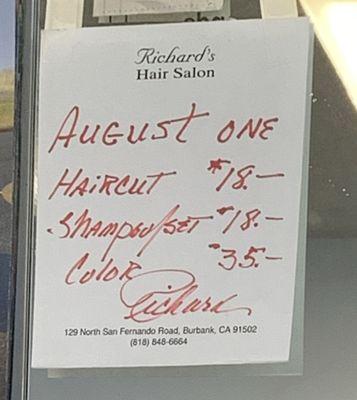 Richard's
Hair Salon
AUGUST ONE
HAIRCUT $18.—
SHAMPOO/SET $18.—
COLOR $35.—
Richard
129 North San Fernando Road, Burbank, CA 91502
(818) 848-6664